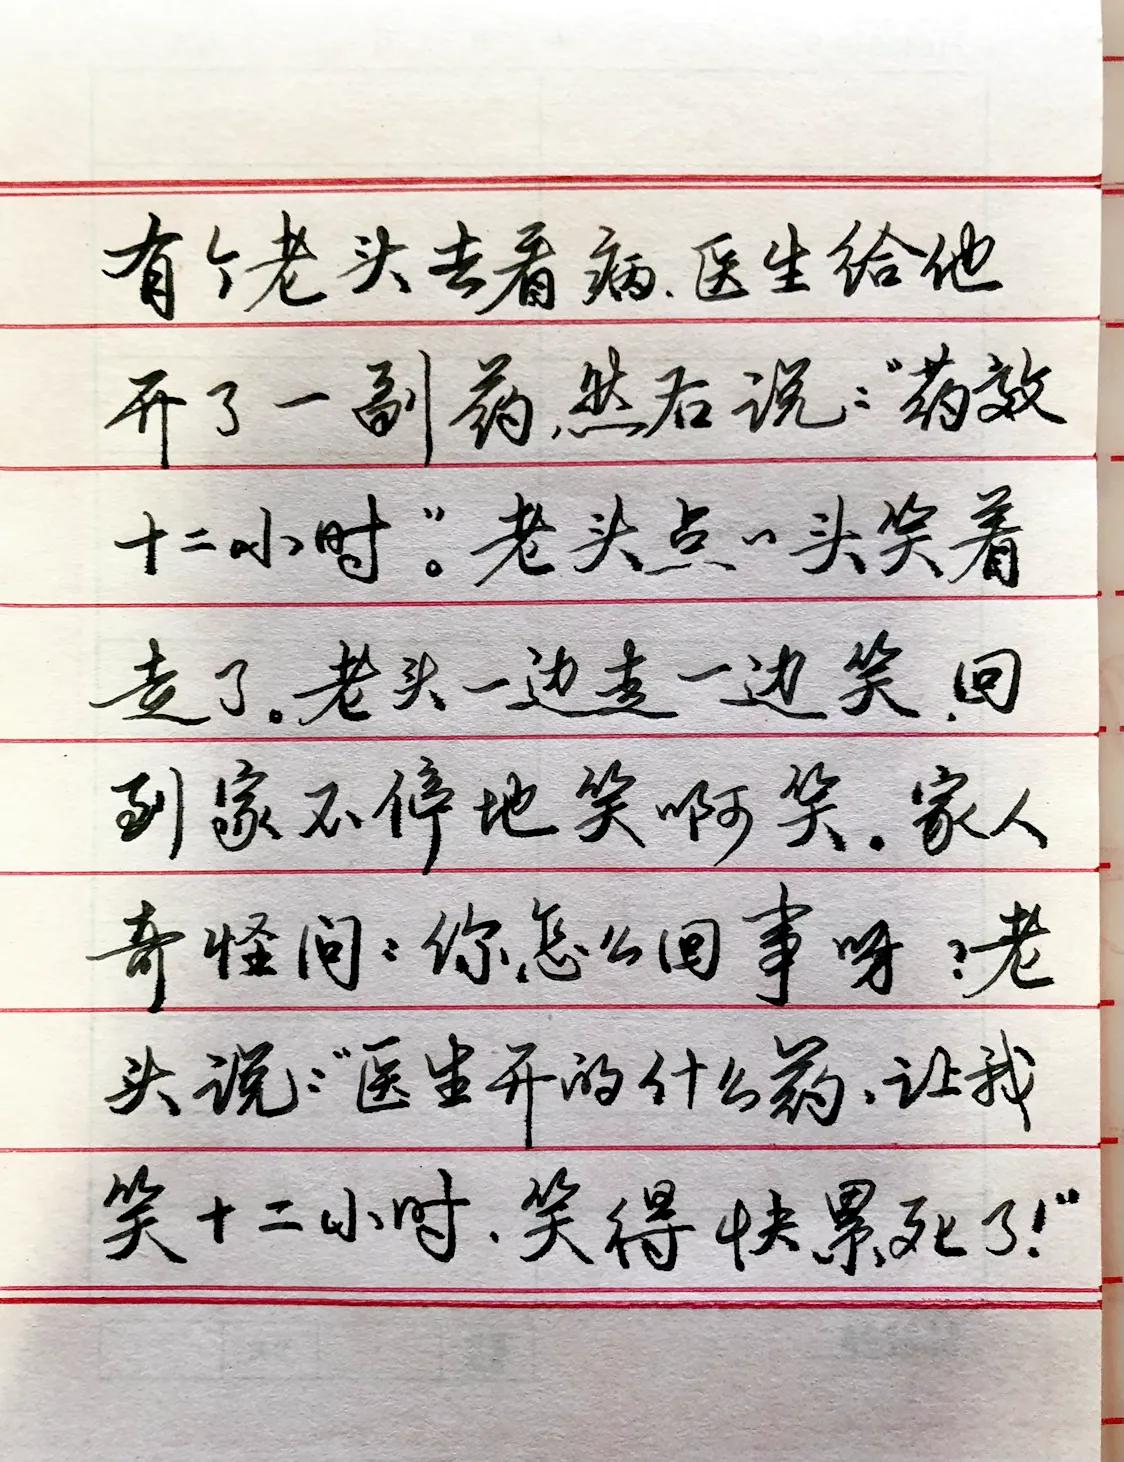 有个老头去看病、医生给他
开了一副药,然后说:“药效
十二小时”。老头点〃头笑着
走了。老头一边走一边笑,回
到家不停地笑啊笑。家人
奇怪问:你怎么回事呀?老
头说:“医生开的什么药、让我
笑十二小时、笑得快累死了!“